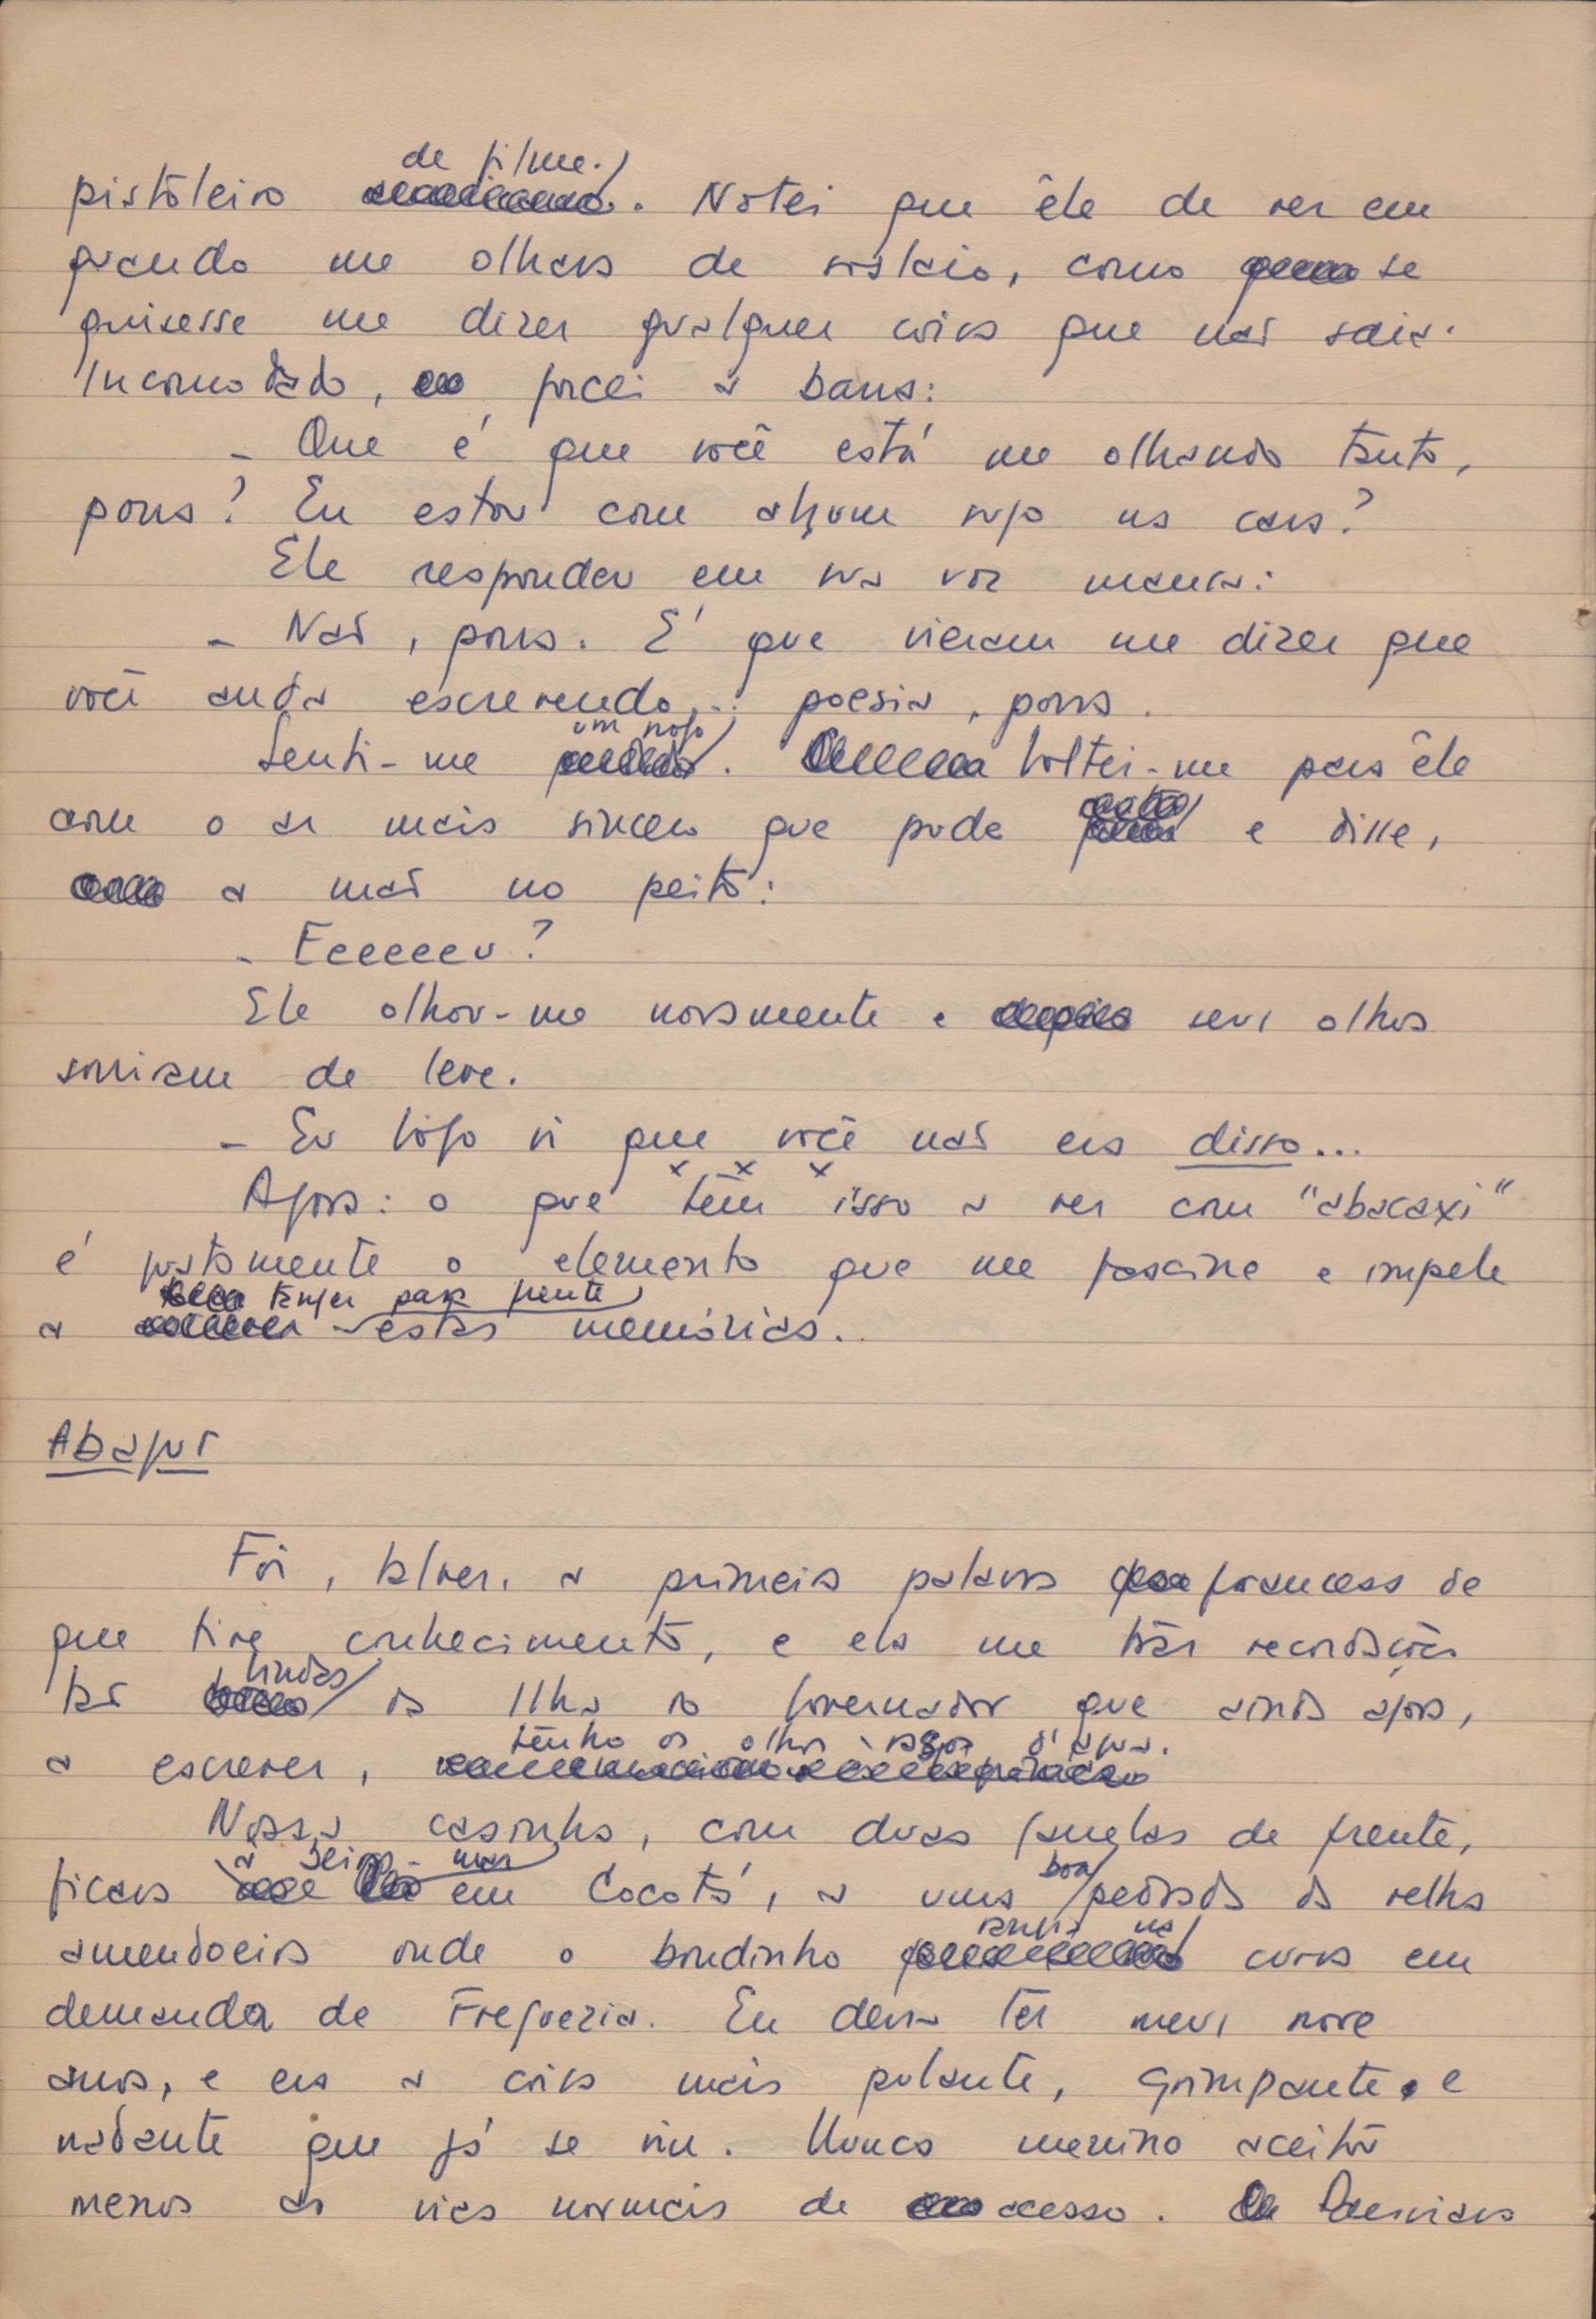 de filme.
pistoleiro . Notei que êle de vez em
quando me olhava de soslaio, como se
quisesse me dizer qualquer coisa que não saía.
Incomodado, forcei a barra:
- Que é que você está me olhando tanto,
pôrra? Eu estou com algum sujo na cara?
Ele respondeu em sua voz mansa:
- Não, pôrra. É que vieram me dizer que
você anda escrevendo... poesia, pôrra.
um nojo
Senti-me . Voltei-me para êle
com o ar mais sincero que pude e disse,
a mão no peito:
- Eeeeeeu?
Ele olhou-me novamente e seus olhos
sorriram de leve.
- Eu logo vi que você não era disso...
x x x
Agora: o que têm isso a ver com "abacaxi"
é justamente o elemento que me fascina e impele
tanger para frente
a estas memórias.
Abajur
Foi, talvez, a primeira palavra francesa de
que tive conhecimento, e ela me traz recordações
lindas
tão da Ilha do Governador que ainda agora,
tenho os olhos rasos d'água.
a escrever,
Nossa casinha, com duas janelas de frente,
à beira-mar
ficava em Cocotá, a uma pedrada da velha
boa
amendoeira onde o bondinho curva em
demanda de Freguezia. Eu devia ter meus nove
anos, e era a coisa mais pulante, grimpante e
nadante que já se viu. Nunca menino aceitou
menos as vias normais de acesso. Desviava